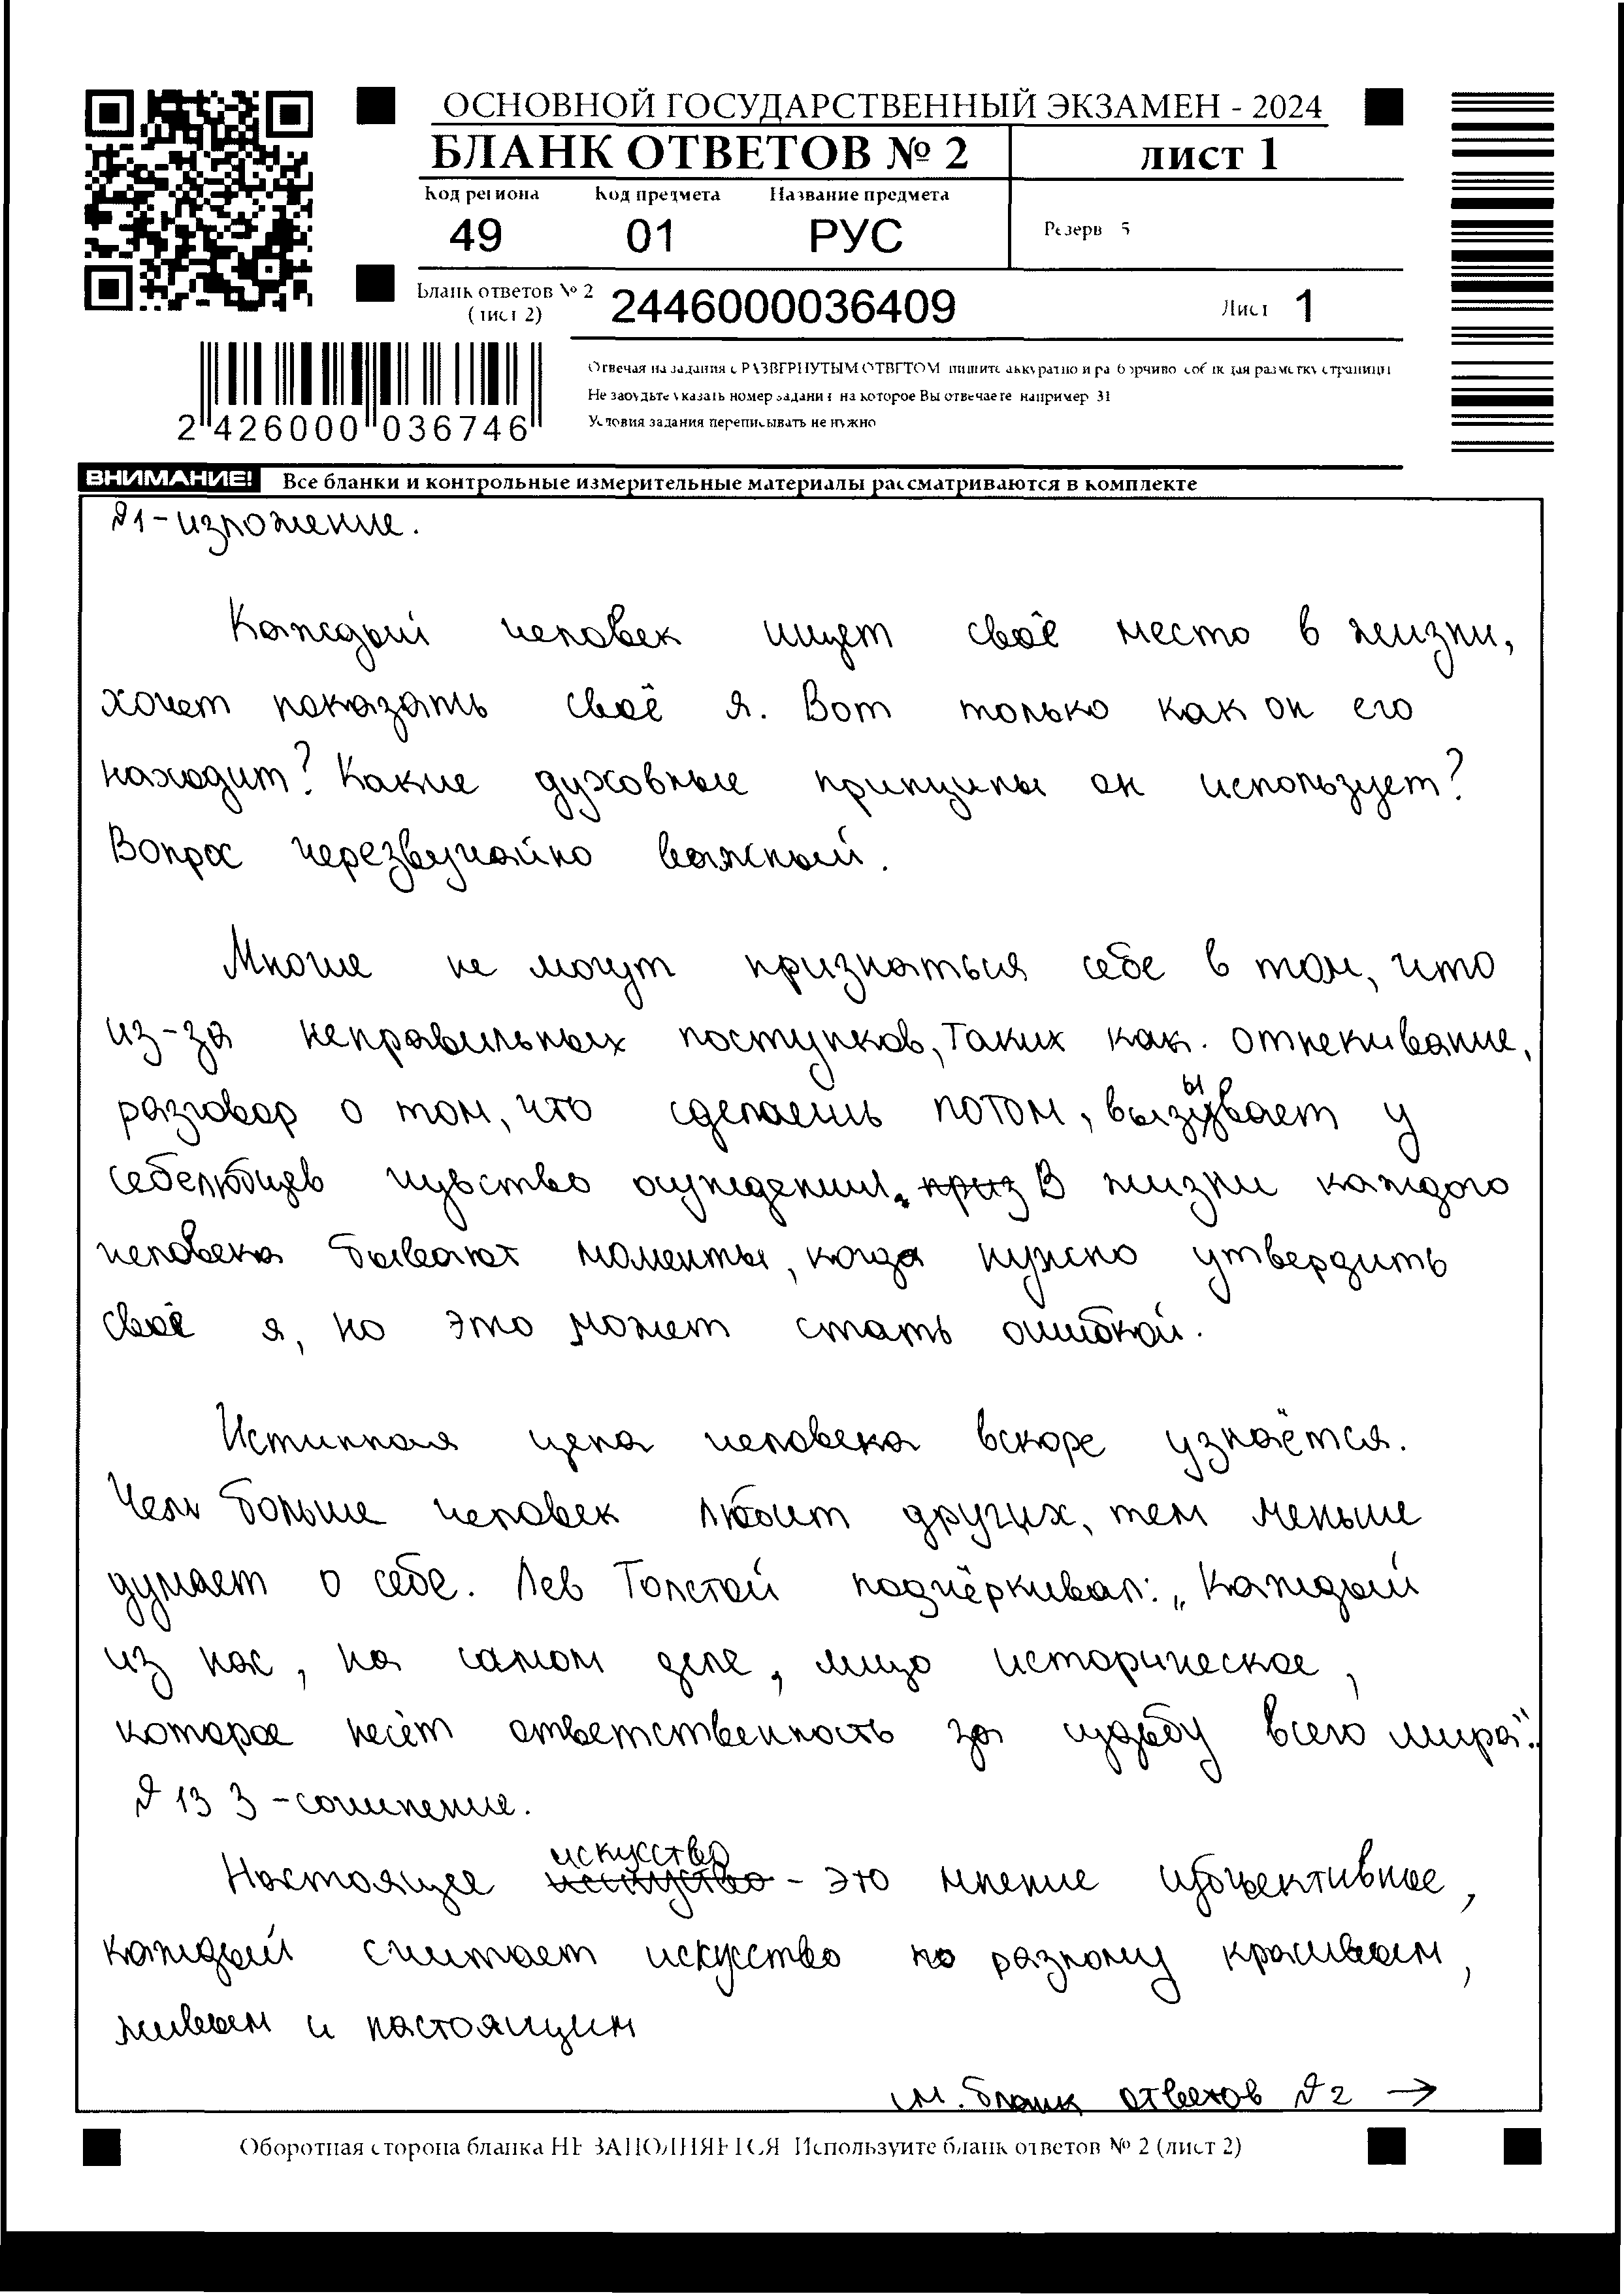 ОСНОВНОЙ ГОСУДАРСТВЕННЫЙ ЭКЗАМЕН - 2024
БЛАНК ОТВЕТОВ № 2
ЛИСТ 1
Код региона Код предмета Название предмета
49 01 РУС
Резерв 5
Бланк ответов № 2
(лист 2)
2446000036409
Лист 1
2 426000 036746
Отвечая на задания с РАЗВЕРНУТЫМ ОТВЕТОМ пишите аккуратно и разборчиво соблюдая разметку страницы
Не забудьте указать номер задания на которое Вы отвечаете например 31
Условия задания переписывать не нужно
ВНИМАНИЕ! Все бланки и контрольные измерительные материалы рассматриваются в комплекте
№1-изложение.
Каждый человек ищет своё место в жизни,
хочет показать своё я. Вот только как он его
находит? Какие духовные принципы он использует?
Вопрос черезвучайно важный.
Многие не могут признаться себе в том, что
из-за неправильных поступков, таких как. отнекивание,
разговор о том, что сделаешь потом, вызывает у
себелюбцев чувство осуждения. В жизни каждого
человека бывают моменты, когда нужно утвердить
своё я, но это может стать ошибкой.
Истинная цена человека вскоре узнаётся.
Чем больше человек любит других, тем меньше
думает о себе. Лев Толстой подчёркивал: „Каждый
из нас, на самом деле, лицо историческое,
которое несёт ответственность за судьбу всего мира".
№ 13 3 -сочинение.
Настоящее искусство - это мнение субъективное,
каждый считает искусство по разному красивым,
живым и настоящим
см. бланк ответов №2 →
Оборотная сторона бланка НЕ ЗАПОЛНЯЕТСЯ Используйте бланк ответов № 2 (лист 2)